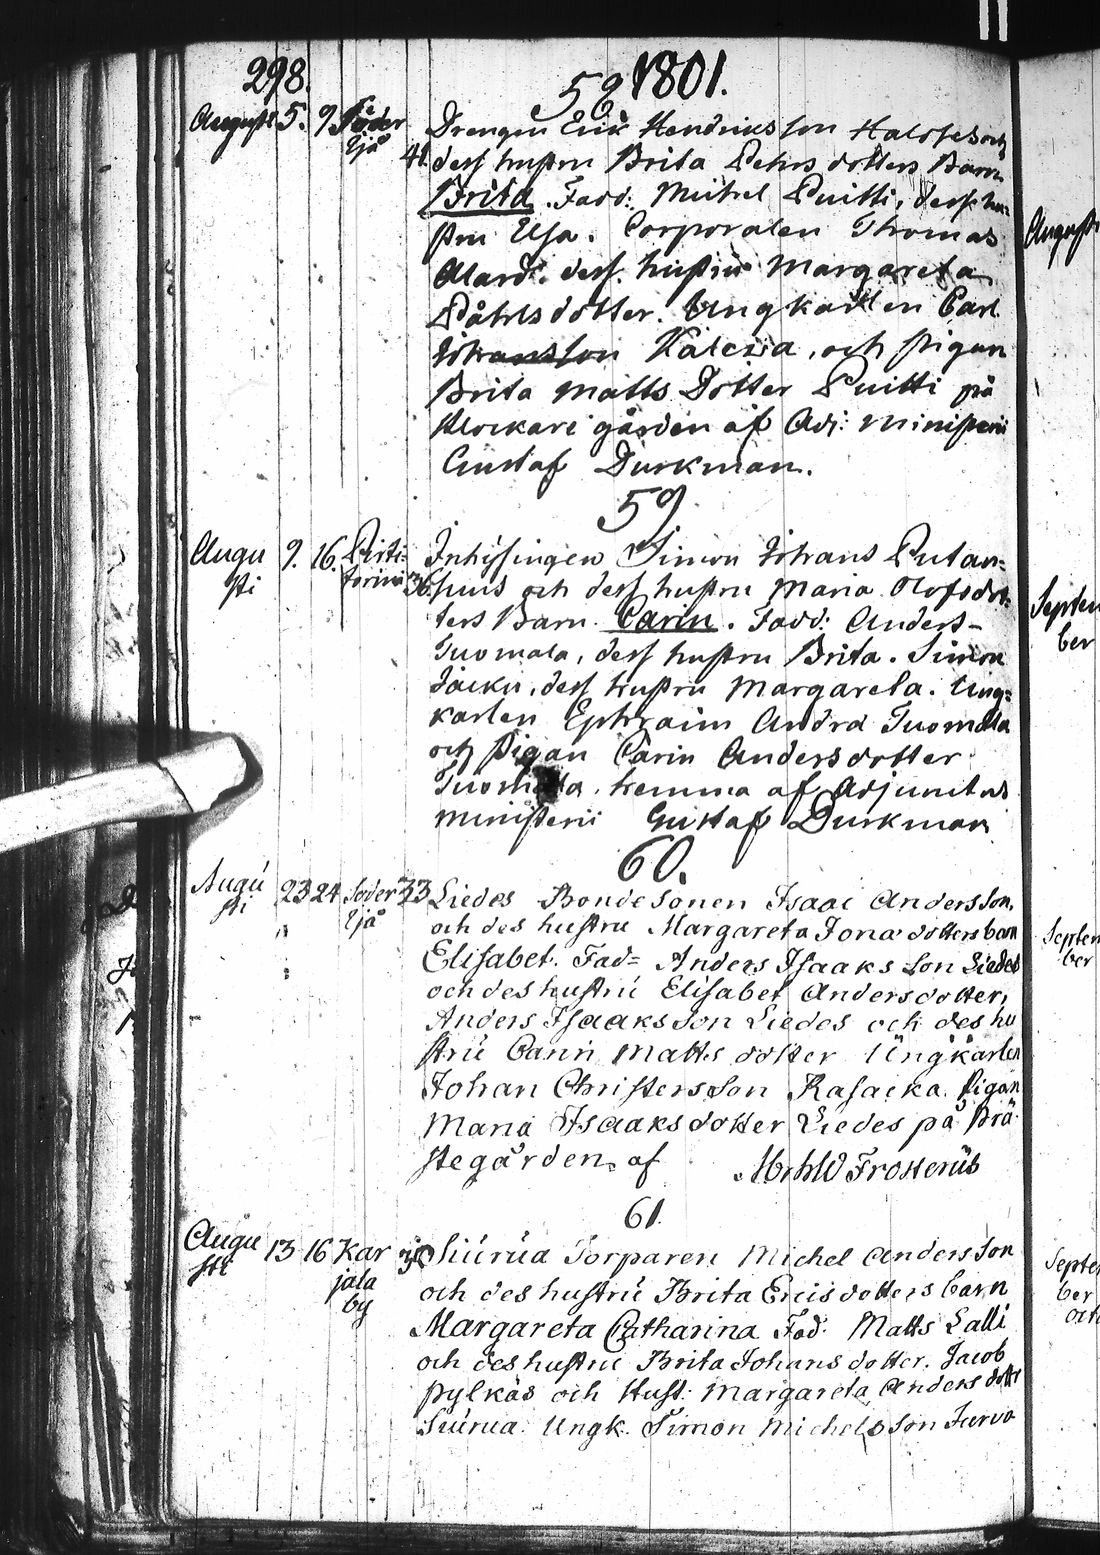 298.
1801.
58
Augusti 5. 9. Söder
Ijå
41.
Drengen Erik Hendricksson och
dess hustru Brita Pehrs dotters Barn
Brita. Fadd: Michel Puitti, dess hu-
stru Elsa. Corporalen Thomas
dess hustru Margareta
Påhlsdotter. Ungkarlen Carl
Johansson och Pigan
Brita Matts Dotter Puitti på
Klockare gården af Adj: Ministerii
Gustaf Durkman.
59.
Augu
sti
9. 16. Pirti-
torin 36.
Inhysingen Simon Johans
och dess hustru Maria Olofsdot-
ters Barn Carin. Fadd: Anders-
Tuomala, dess hustru Brita. Simon
Jäcku, dess hustru Margareta. Ung-
karlen Ephraim Andrs Tuomala
och Pigan Carin Andersdotter
Tuomala. hemma af Adjunctus
Ministerii Gustaf Durkman
60.
Augu
sti
23 24 Söder
Ijå
33
Liedes Bondesonen Isaac Andersson,
och des hustru Margareta Jona dotters barn
Elisabet. Fad= Anders Isaaks Son Liedes
och des hustru Elisabet Andersdotter,
Anders Isaaksson Liedes och des hu
stru Carin Matts dotter Ungkarlen
Johan Christersson Rasacka. Pigan
Maria Isaaksdotter Liedes på Prä
stegården. af Frosterus
61.
Augu
sti
13 16 Kar
jala
by
Siurua Torparen Michel Andersson
och des hustru Brita Ericsdotters barn
Margareta Catharina Fad: Matts Lalli
och des hustru Brita Johans dotter. Jacob
Pylkäs och Hust: Margareta Anders dotter
Siurua. Ungk. Simon Michelsson Jurva
Augusti
Septem
ber
Septem
ber
Septem
ber